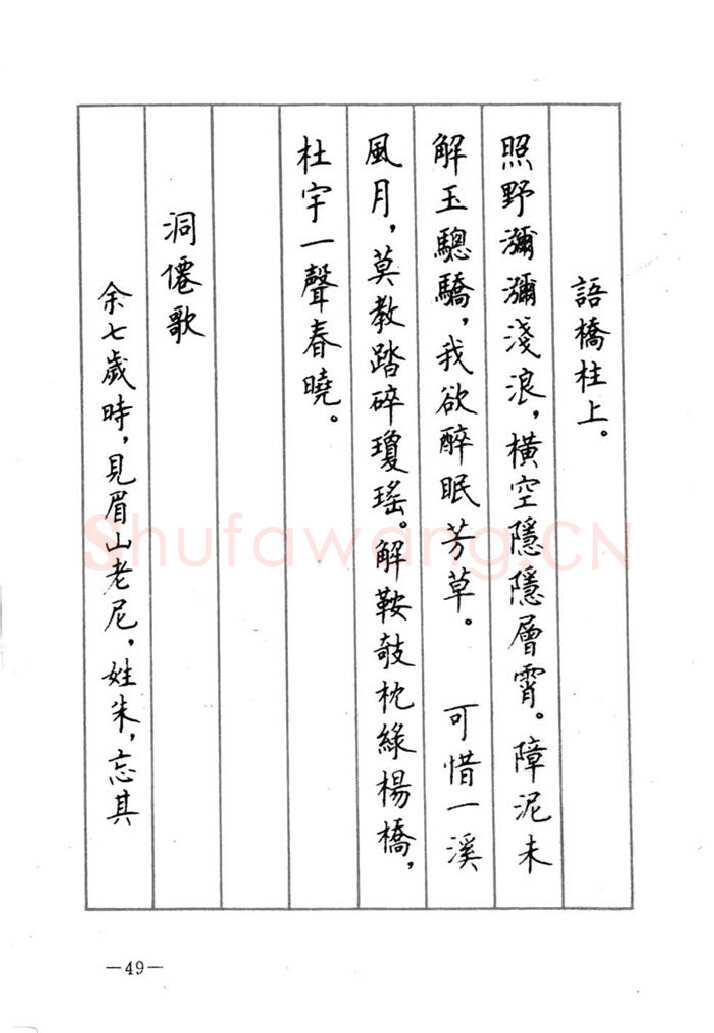 語橋柱上。
照野瀰瀰淺浪，橫空隱隱層霄。障泥未
解玉驄驕，我欲醉眠芳草。 可惜一溪
風月，莫教踏碎瓊瑤。解鞍攲枕綠楊橋，
杜宇一聲春曉。
洞僊歌
余七歲時，見眉山老尼，姓朱，忘其
—49—
Shufawang.CN